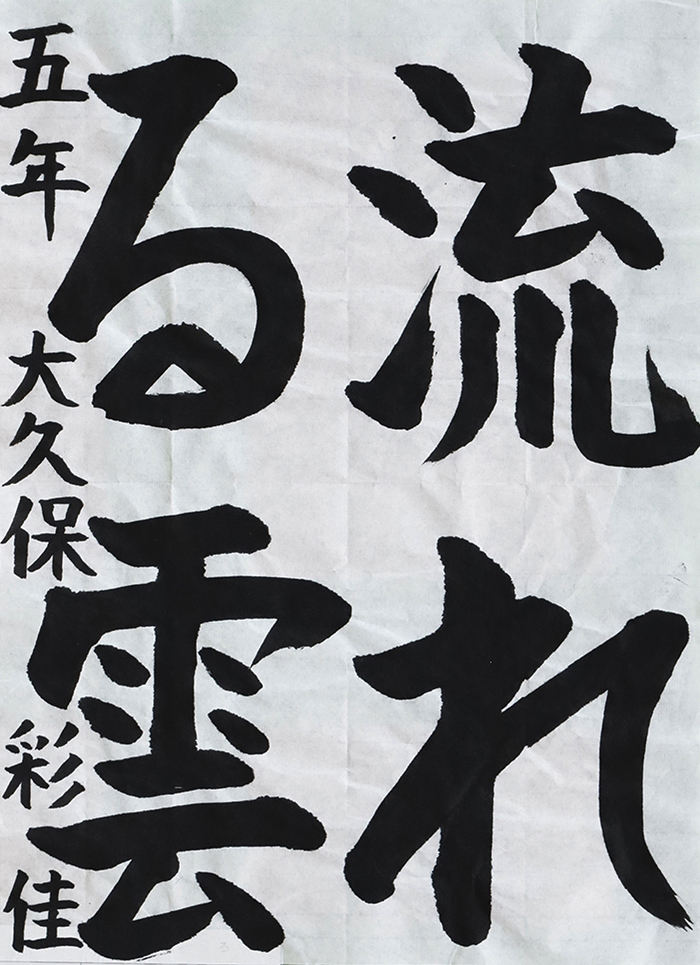 流れ
る雲
五年 大久保 彩佳